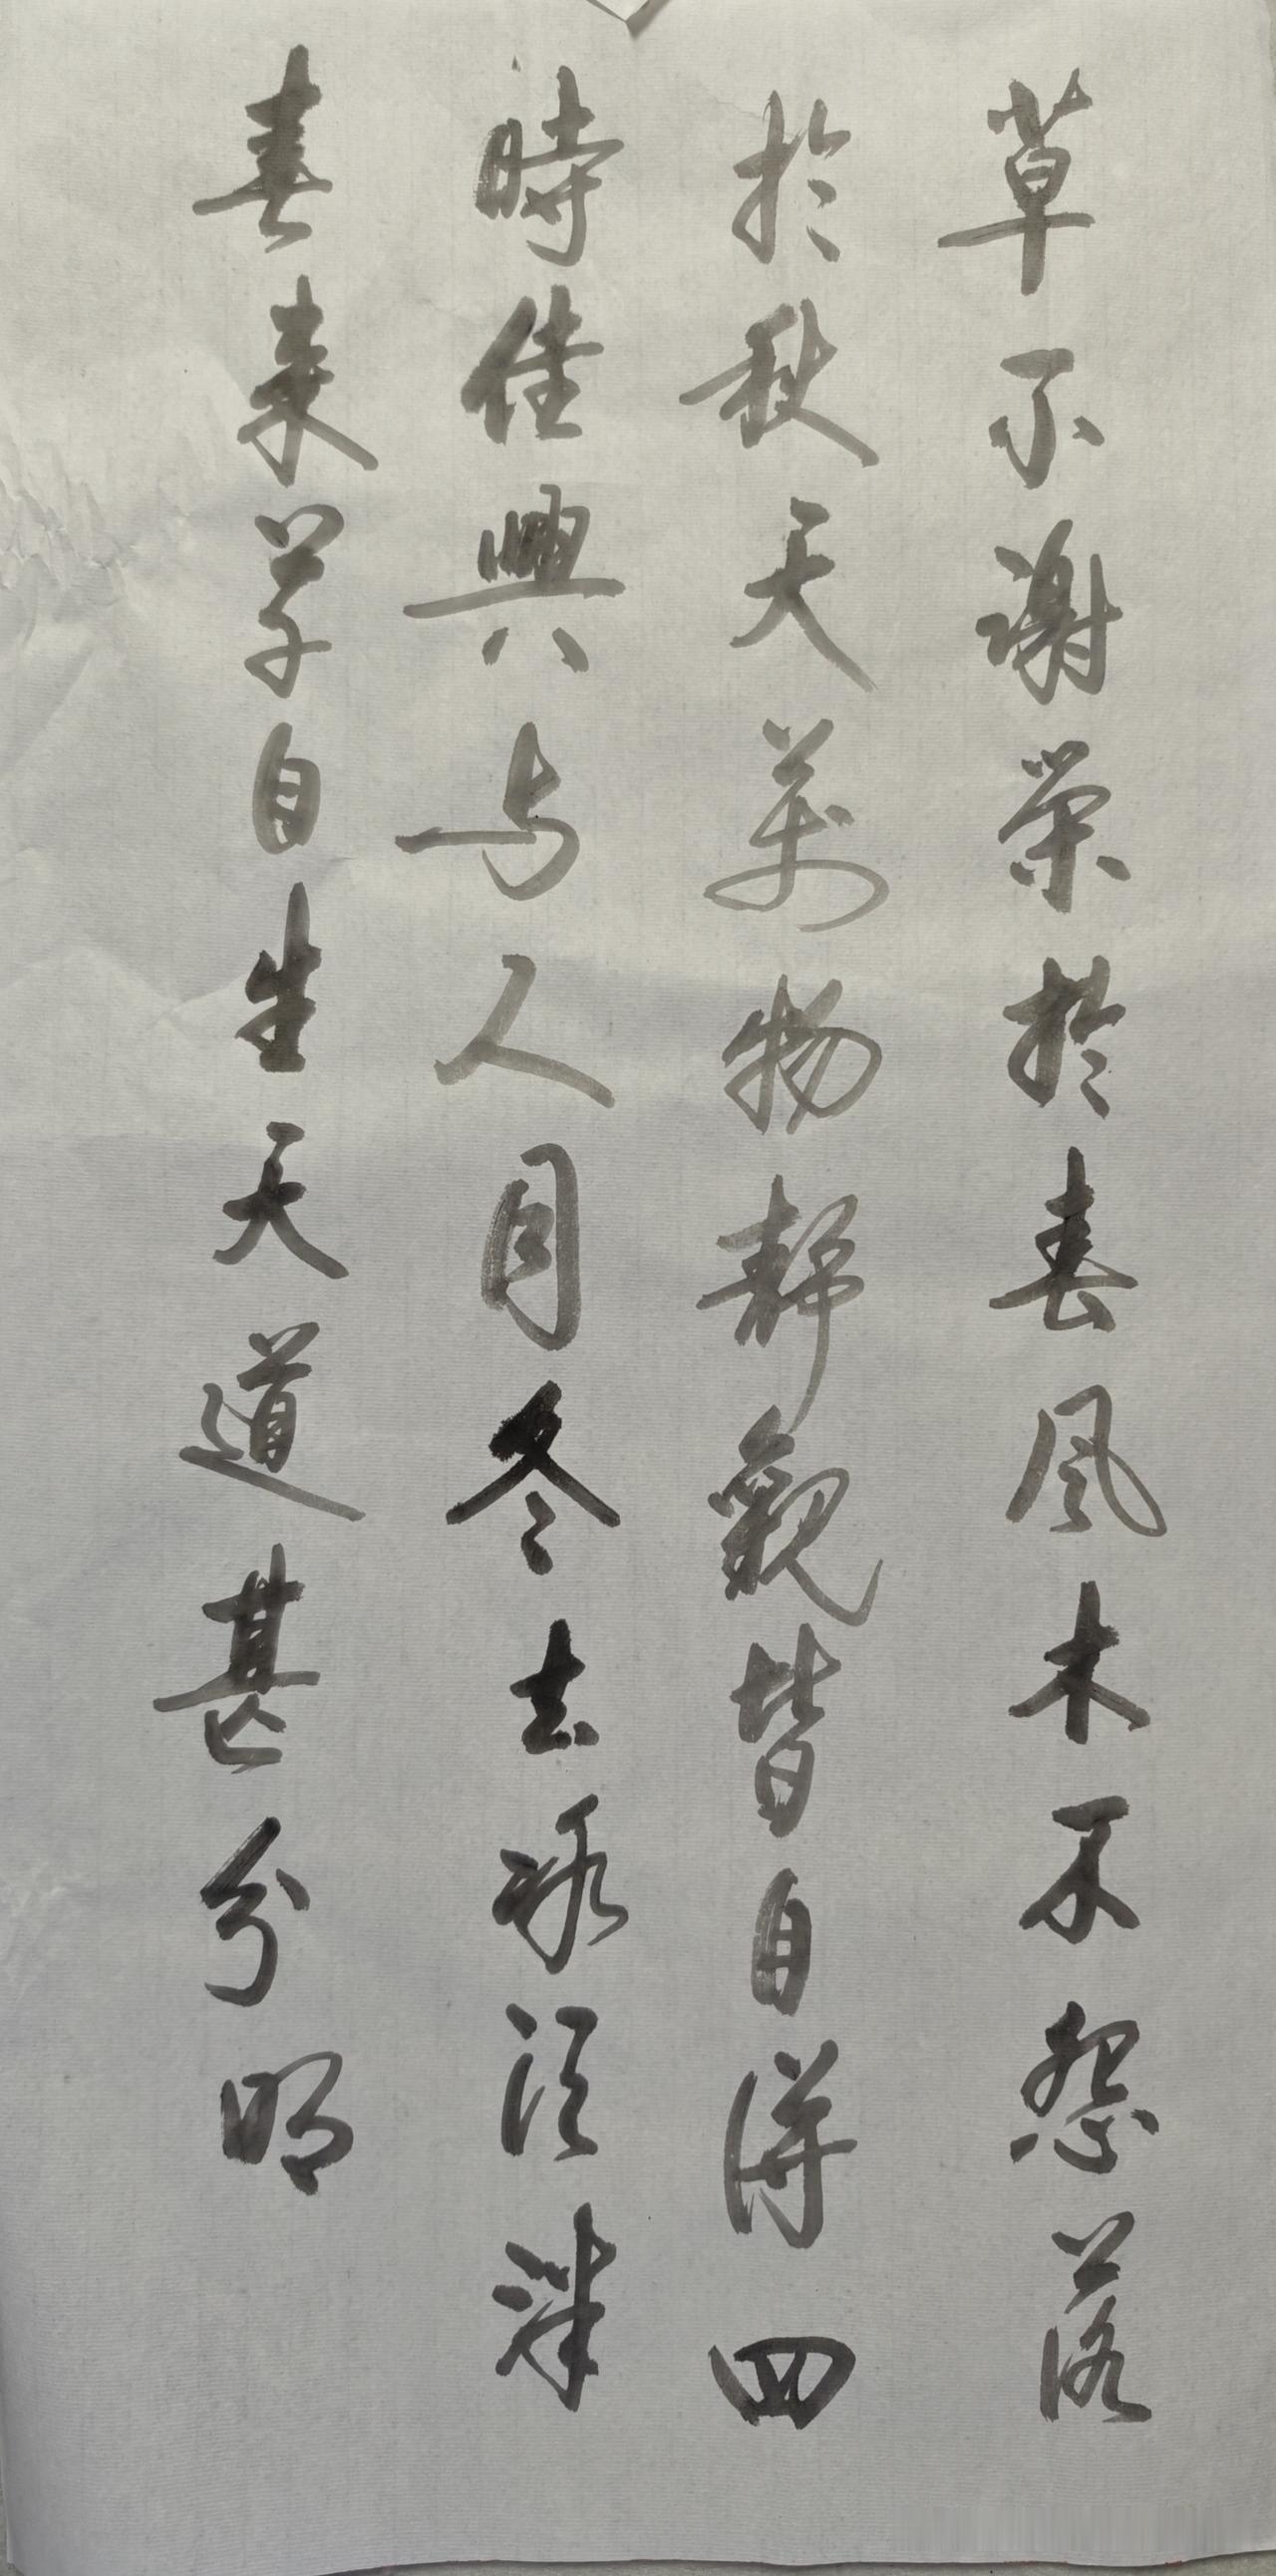 草不謝榮於春風木不怨落
於秋天萬物靜觀皆自得四
時佳興与人同冬去冰須泮
春来草自生天道甚分明